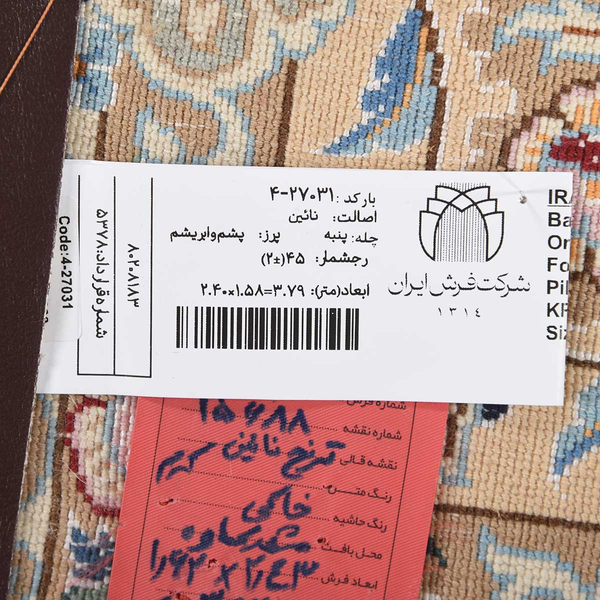 بارکد: ۴-۲۷۰۳۱
اصالت: نائین
چله: پنبه پرز: پشم‌وابریشم
رجشمار: ۴۵(±۲)
ابعاد(متر): ۲.۴۰×۱.۵۸=۳.۷۹
شرکت فرش ایران
۱۳۱۴
۸۰۲۰۸۱۸۳
شماره قرارداد: ۵۳۷۸
Code:4-27031
IR
Ba
Or
Fo
Pil
KP
Siz
شماره فرش
شماره نقشه ۱۵۶۸۸
نقشه قالی ترنج نائینی
رنگ متن
رنگ حاشیه خاکی
محل بافت
ابعاد فرش ۱/۶۲ × ۲/۴۳